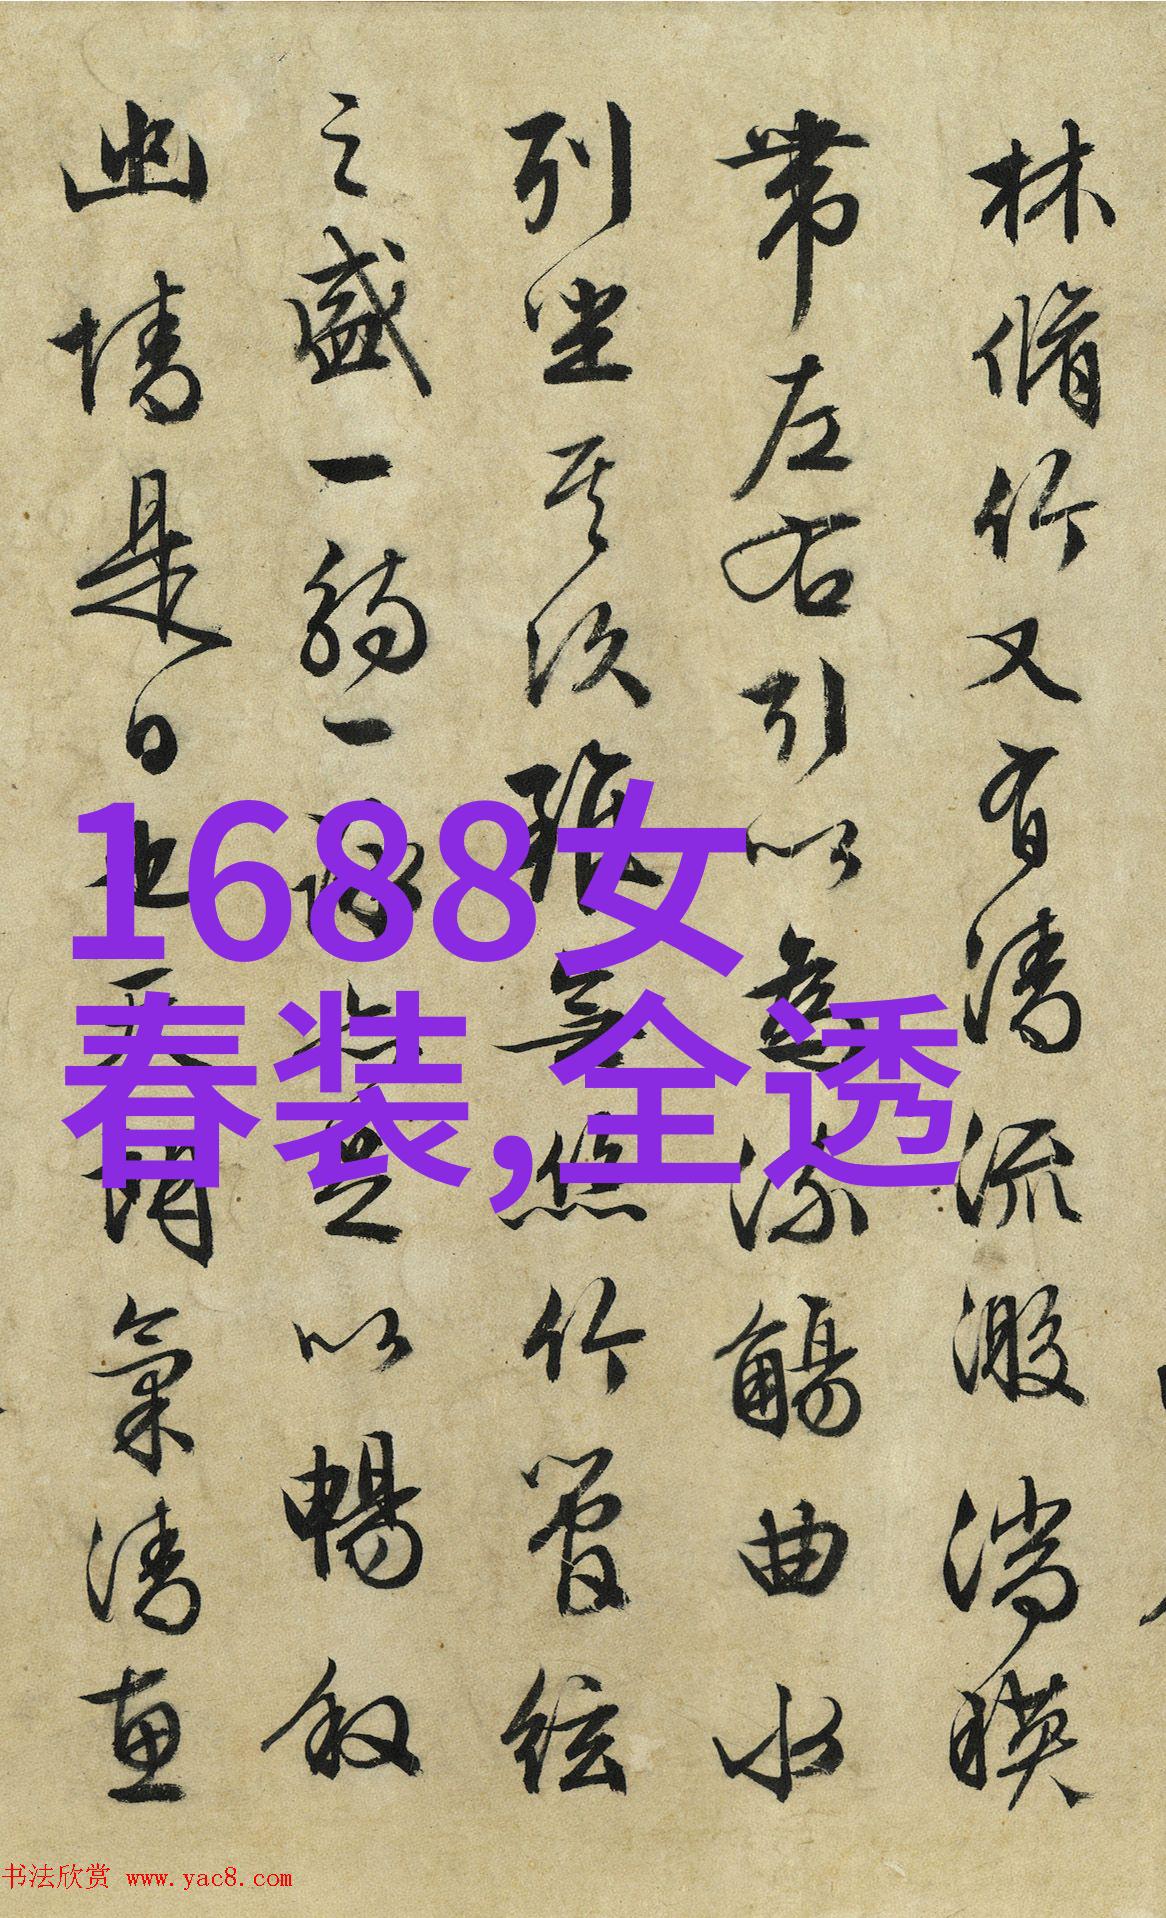 林脩竹又有清流激湍暎
帶左右引以為流觴曲水
列坐其次雖無絲竹管絃
之盛一觴一詠亦足以暢敘
幽情是日也天朗氣清惠
1688女
春装,全透
书法欣赏 www.yac8.com